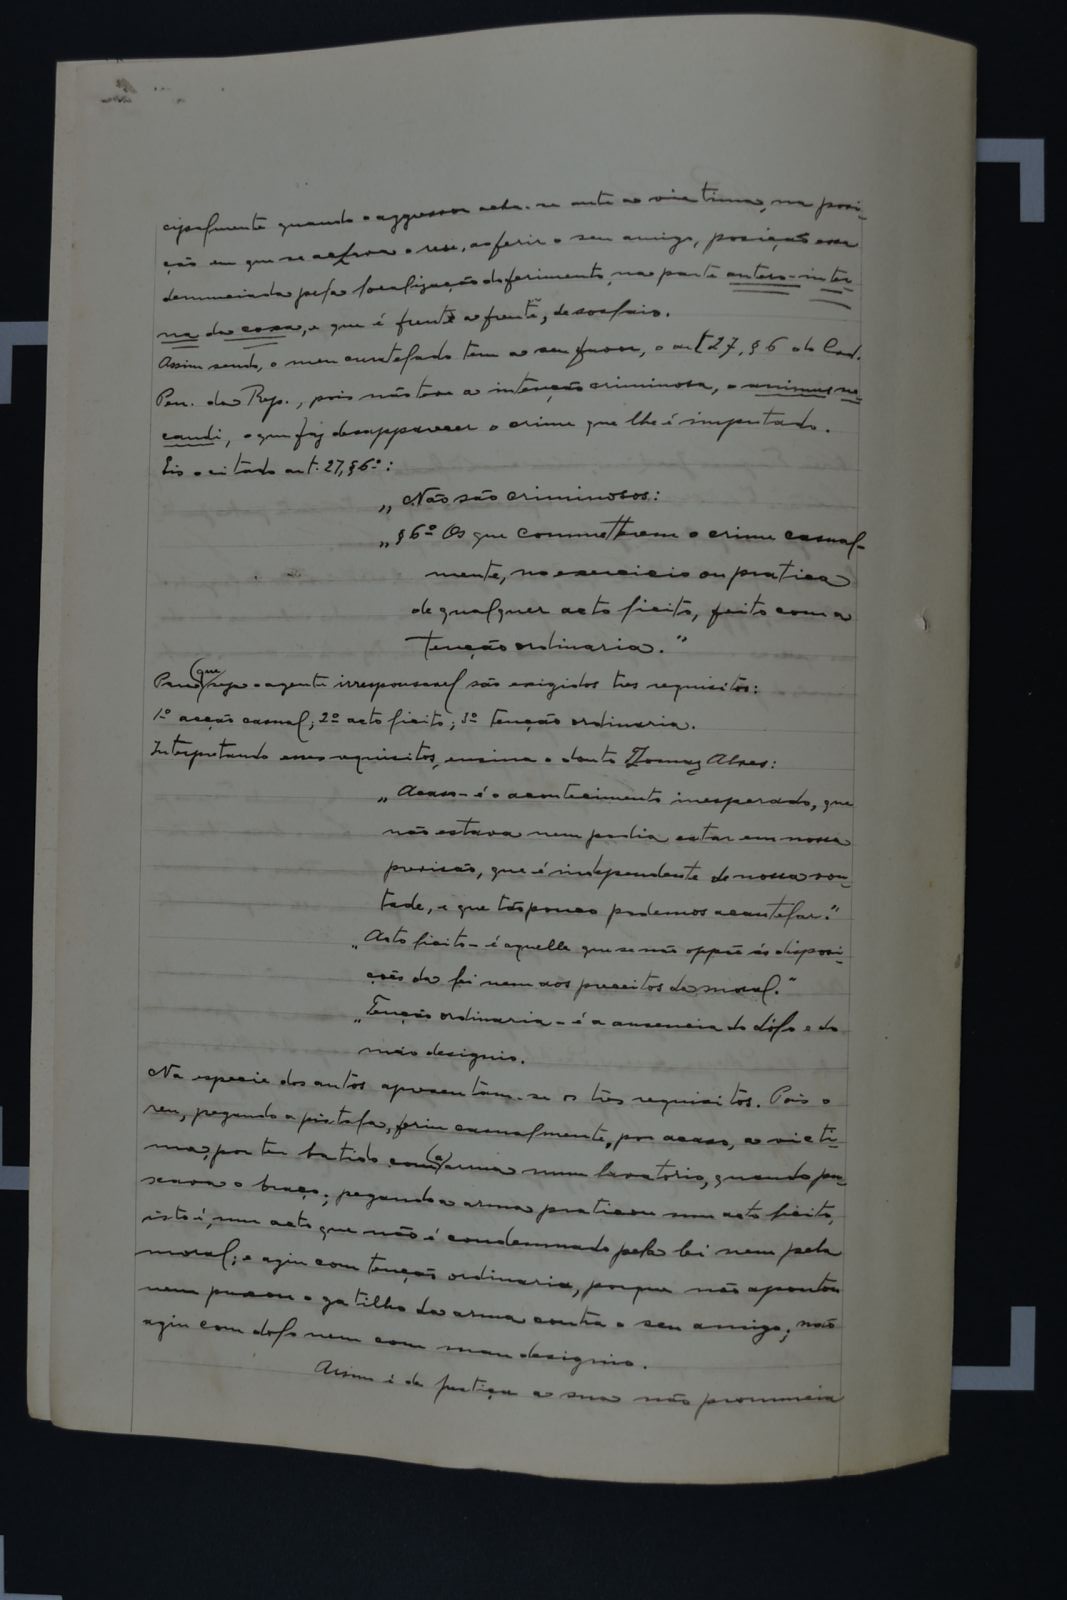 cipalmente quando o aggressor acha-se ante a victima, na posi-
ção em que se achava o reu, ao ferir o seu amigo, posição essa
denunciada pela localização do ferimento, na parte antero-inter-
na da coxa, e que é frente a frente, de soslaio.
Assim sendo, o meu curatelado tem a seu favor, o art 27, § 6 do Cod.
Pen. da Rep., pois não teve a intenção criminosa, o animus ne-
candi, o que faz desapparecer o crime que lhe é imputado.
Eis o citado art. 27, § 6º:
„ Não são criminosos:
„ § 6º Os que commetterem o crime casual-
mente, no exercicio ou pratica
de qualquer acto licito, feito com a
tenção ordinaria."
Para que seja o agente irresponsavel são exigidos tres requisitos:
1º acção casual; 2º acto licito; 3º tenção ordinaria.
Interpretando esses requisitos, ensina o douto Thomaz Alves:
„ Acaso - é o acontecimento inesperado, que
não estava nem podia estar em nossa
previsão, que é independente de nossa von-
tade, e que tão pouco podemos acautelar."
„ Acto licito - é aquelle que se não oppõe ás disposi-
ções da lei nem aos preceitos da moral."
„ Tenção ordinaria - é a ausencia do dólo e do
máo designio.
Na especie dos autos apresentam-se os tres requisitos. Pois o
reu, pegando a pistola, feriu casualmente, por acaso, a victi-
ma, por ter batido com a arma num lavatorio, quando pu-
xava o braço; pegando a arma praticou um acto licito,
isto é, um acto que não é condemnado pela lei nem pela
moral; e agiu com tenção ordinaria, porque não apontou
nem puxou o gatilho da arma contra o seu amigo; não
agiu com dolo nem com mau designio.
Assim é de justiça a sua não pronuncia